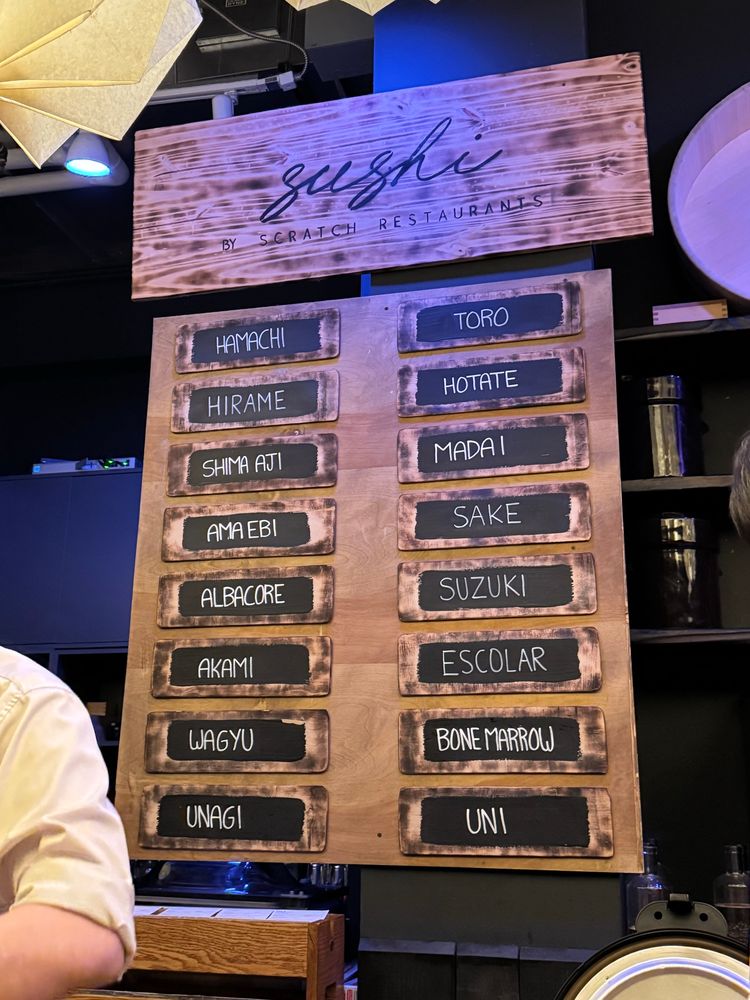 sushi
BY SCRATCH RESTAURANTS
HAMACHI
HIRAME
SHIMA AJI
AMA EBI
ALBACORE
AKAMI
WAGYU
UNAGI
TORO
HOTATE
MADAI
SAKE
SUZUKI
ESCOLAR
BONE MARROW
UNI